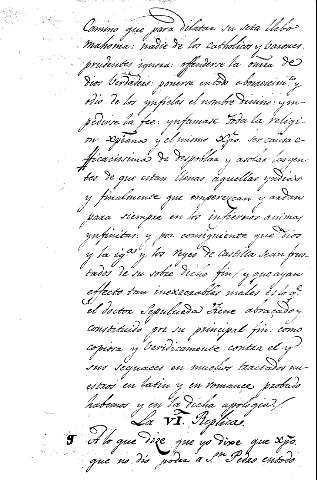 Camino que para dilatar su seta llebo
mahoma: nadie de los catholicos y varones
prudentes ignora: offenderse la honra de
dios verdadero: ponerse en todo aborrecim.to y
odio de los ynfieles el nombre divino: y ym-
pedirse la fee: ynfamase toda la religi-
on xp̃iana y el mismo xp̃o. ser causa e-
fficacissima de despoblar y asolar las gen-
tes de que estan llenas aquellas yndias
y finalmente que emperezcan y ardan
para siempre en los infiernos animas
ynfinitas: y por consiguiente que dios
y la ig.a y los reyes de Castilla sean frus-
tados de su sobre dicho fin/ y que ayan
effecto tan inexcrables males es lo q.e
el doctor Sepulueda tiene abraçado y
constituido por su principal fin: como
copiosa y veridicamente contra el y
sus sequaces en muchos tractados nu-
estros en latin y en romance probado
habemos y en la dicha apologia./
La VI. Replica.
A lo que dize que yo dixe que xp̃o.
que no dio poder a S.n Pedro en todo